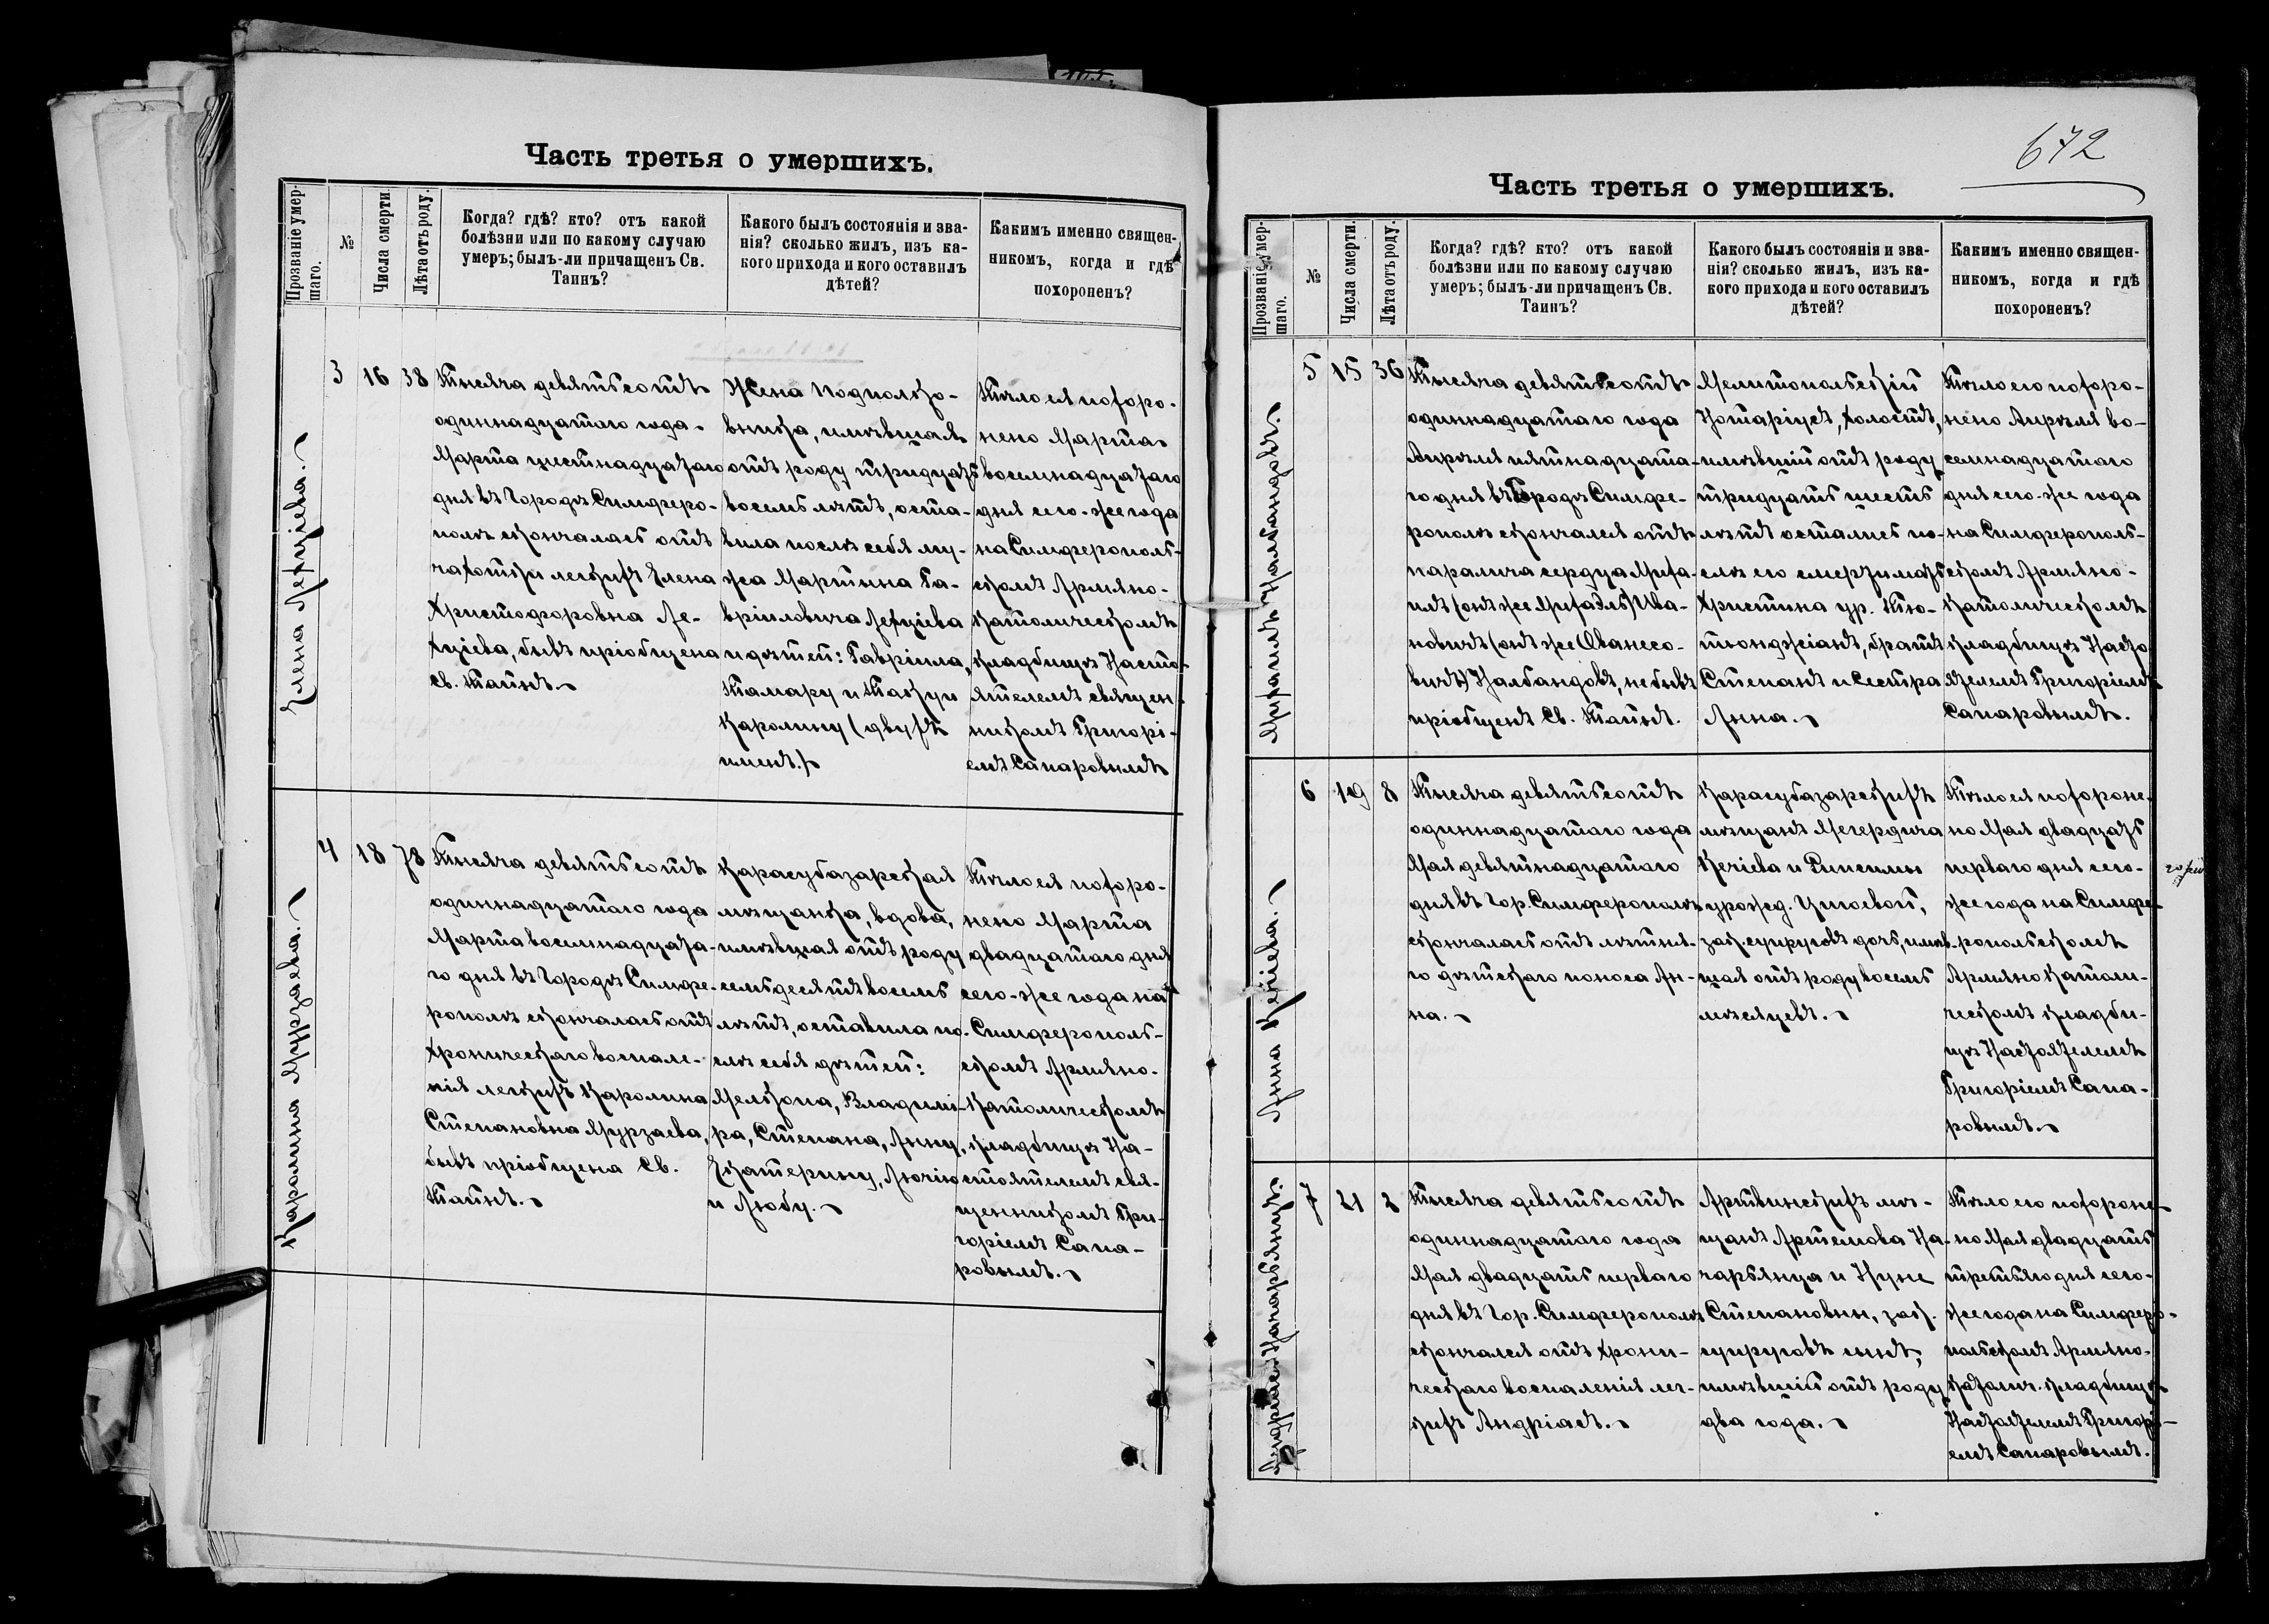 Часть третья о умершихъ.
Прозваніе умер-
шаго.
№
Числа смерти.
Лѣта отъ роду.
Когда? гдѣ? кто? отъ какой
болѣзни или по какому случаю
умеръ; былъ-ли причащенъ Св.
Таинъ?
Какого былъ состоянія и зва-
нія? сколько жилъ, изъ ка-
кого прихода и кого оставилъ
дѣтей?
Какимъ именно священ-
никомъ, когда и гдѣ
похороненъ?
Елена
3
16
38
Тысяча девятьсотъ
одиннадцатаго года
Марта шестнадцатаго
дня въ Городѣ Симферо-
полѣ скончалась отъ
чахотки легкихъ Елена
Христофоровна Ле-
хціева, бывъ пріобщена
Св. Таинъ.
Жена Подполко-
вника, имѣвшая
отъ роду тридцать
восемь лѣтъ, оста-
вила послѣ себя му-
жа Мартына Га-
вриловича Лехціева
и дѣтей: Гавріила,
Тамару и Таӄуи
Каролину (двухъ
именъ.)
Тѣло ея похоро-
нено Марта
восемнадцатаго
дня сего-же года
на Симферополь-
скомъ Армяно-
Католическомъ
кладбищѣ Насто-
ятелемъ священ-
никомъ Григорі-
емъ Сапаровымъ
Каролина Мурзаева.
4
18
78
Тысяча девятьсотъ
одиннадцатаго года
Марта восемнадцата-
го дня въ Городѣ Симфе-
рополѣ скончалась отъ
хроническаго воспале-
нія легкихъ Каролина
Степановна Мурзаева,
бывъ пріобщена Св.
Таинъ.
Карасубазарская
мѣщанка, вдова,
имѣвшая отъ роду
семьдесятъ восемь
лѣтъ, оставила по-
слѣ себя дѣтей:
Мелкона, Владими-
ра, Степана, Анну,
Екатерину, Лючію
и Любу.
Тѣло ея похоро-
нено Марта
двадцатаго дня
сего-же года на
Симферополь-
скомъ Армяно-
Католическомъ
кладбищѣ На-
стоятелемъ свя-
щенникомъ Гри-
горіемъ Сапа-
ровымъ.
672
Часть третья о умершихъ.
Прозваніе умер-
шаго.
№
Числа смерти.
Лѣта отъ роду.
Когда? гдѣ? кто? отъ какой
болѣзни или по какому случаю
умеръ; былъ-ли причащенъ Св.
Таинъ?
Какого былъ состоянія и зва-
нія? сколько жилъ, изъ ка-
кого прихода и кого оставилъ
дѣтей?
Какимъ именно священ-
никомъ, когда и гдѣ
похороненъ?
Михаилъ Налбандовъ.
5
15
36
Тысяча девятьсотъ
одиннадцатаго года
Апрѣля пятнадцата-
го дня въ Городѣ Симфе-
рополѣ скончался отъ
паралича сердца Миха-
илъ (онъ же Михаэлъ) Ива-
новичъ (онъ же Ованесо-
вичъ) Налбандовъ, не бывъ
пріобщенъ Св. Таинъ.
Мелитопольскій
Нотаріусъ, холостъ,
имѣвшій отъ роду
тридцать шесть
лѣтъ остались по-
слѣ его смерти мать
Христина ур. Тю-
тюнджіанъ, братъ
Степанъ и Сестра
Анна.
Тѣло его похоро-
нено Апрѣля во-
семнадцатаго
дня сего-же года
на Симферополь-
скомъ Армяно-
Католическомъ
кладбищѣ Насто
ятелемъ Григоріемъ
Сапаровымъ.
Анна Кечіева.
6
19
8
Тысяча девятьсотъ
одиннадцатаго года
Мая девятнадцатаго
дня въ Гор. Симферополѣ
скончалась отъ лѣтня-
го дѣтскаго поноса Ан-
на.
Карасубазарскихъ
мѣщанъ Мегердича
Кечіева и Рипсимы
урожд.
зак. супруговъ дочь, имѣв-
шая отъ роду восемь
мѣсяцевъ.
Тѣло ея похороне-
но Мая двадцать
перваго дня сего-
же года на Симфе-
ропольскомъ
Армяно Католи-
ческомъ кладби-
щѣ Настоятелемъ
Григоріемъ Сапа-
ровымъ.
Андріасъ Начаркянцъ.
7
21
2
Тысяча девятьсотъ
одиннадцатаго года
Мая двадцать перваго
дня въ Гор. Симферополѣ
скончался отъ хрони-
ческаго воспаленія лег-
кихъ Андріасъ.
Артвинскихъ мѣ-
щанъ Артемова На-
чаркянца и Нуне
Степановны, зак.
супруговъ сынъ,
имѣвшій отъ роду
два года.
Тѣло его похороне-
но Мая двадцать
третьяго дня сего-
же года на Симферо-
польскомъ Армяно-
Католич. кладбищѣ
Настоятелемъ Григорі-
емъ Сапаровымъ.